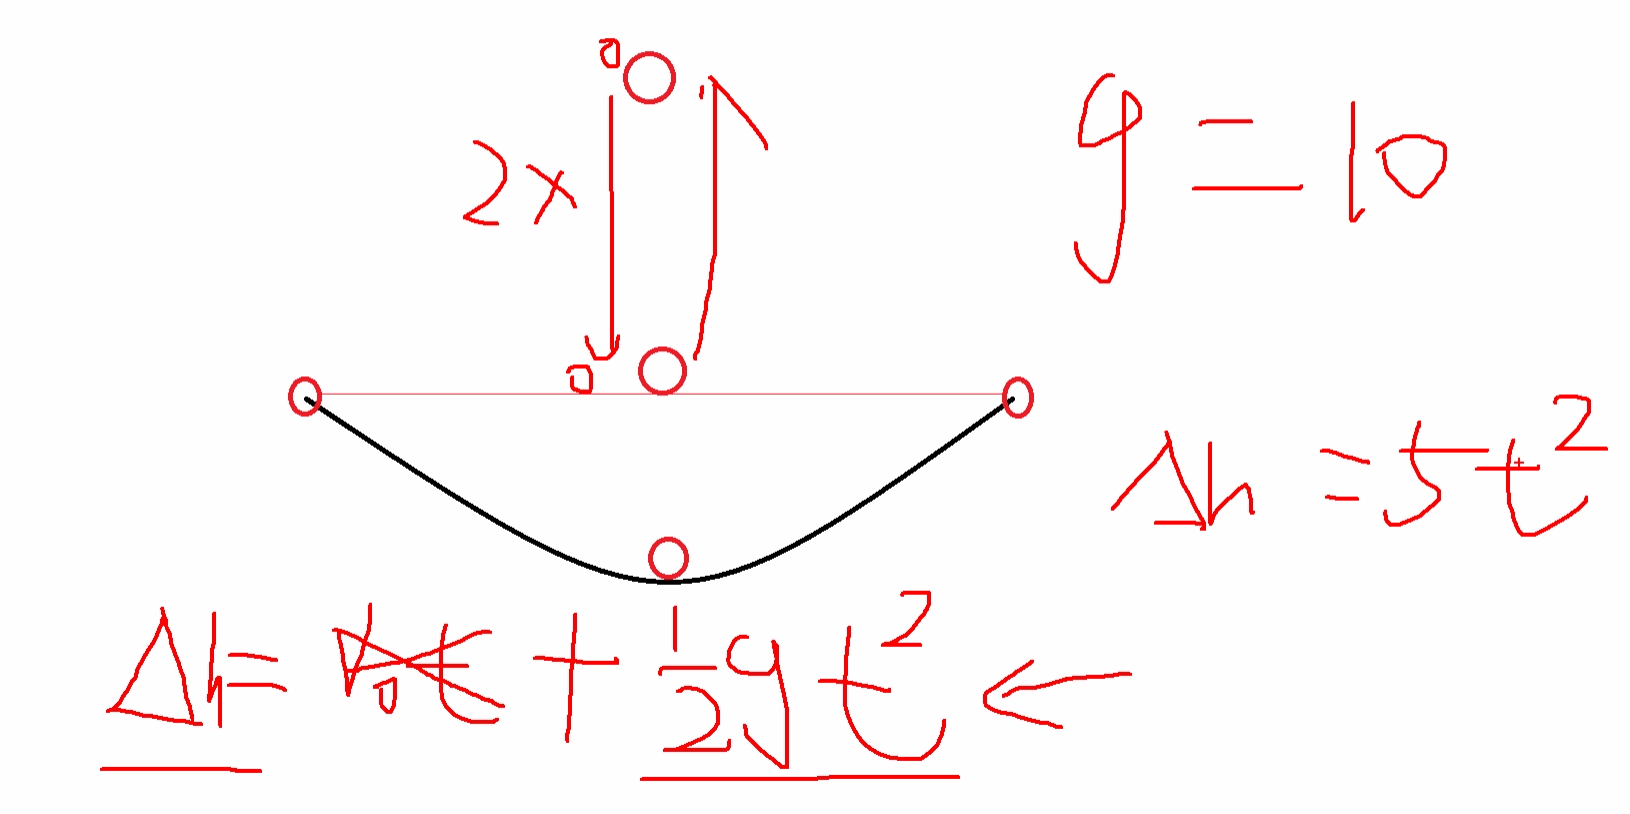 0
2x
g = 10
0
Δh = 5t²
Δh = V₀t + 1/2 gt²